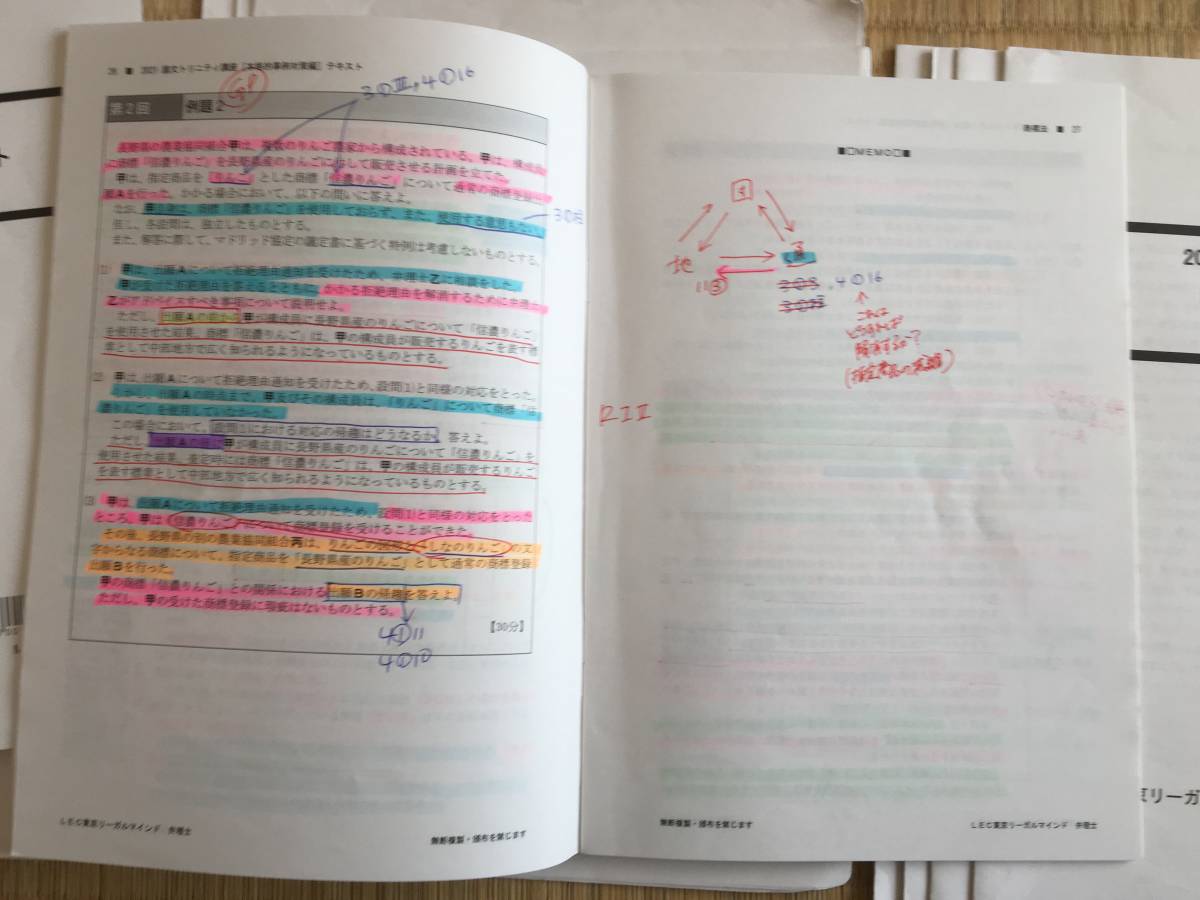 26 ■ 2021 論文トリニティ講座［本格的事例対策編］テキスト
3①Ⅲ, 4①16
第2回 例題2
長野県の農業協同組合甲は、複数のりんご農家から構成されている。甲は、構成員
に商標「信濃りんご」を長野県産のりんごに付して販売させる計画を立てた。
甲は、指定商品を「りんご」とした商標「信濃りんご」について通常の商標登録
願Aを行った。かかる場合において、以下の問いに答えよ。
なお、甲は、商標「信濃りんご」を使用しておらず、また、使用する意思もない。
3①柱
但し、各設問は、独立したものとする。
また、解答に際して、マドリッド協定の議定書に基づく特例は考慮しないものとする。
(1) 甲は、出願Aについて拒絶理由通知を受けたため、弁理士乙に相談をした。
甲が受けた拒絶理由を答えるとともに、かかる拒絶理由を解消するために弁理士
乙がアドバイスすべき事項について説明せよ。
ただし、出願Aの前から甲が構成員に長野県産のりんごについて「信濃りんご」
を使用させた結果、商標「信濃りんご」は、甲の構成員が販売するりんごを表す標
章として中部地方で広く知られるようになっているものとする。
(2) 甲は、出願Aについて拒絶理由通知を受けたため、設問(1)と同様の対応をとった。
しかし、出願Aの時点まで、甲及びその構成員は、「りんご」について商標「信
濃りんご」を使用していなかった。
この場合において、設問(1)における対応の帰趨はどうなるか、答えよ。
ただし、出願Aの後、甲が構成員に長野県産のりんごについて「信濃りんご」を
使用させた結果、査定時には商標「信濃りんご」は、甲の構成員が販売するりんご
を表す標章として中部地方で広く知られるようになっているものとする。
(3) 甲は、出願Aについて拒絶理由通知を受けたため、設問(1)と同様の対応をとった
ところ、甲は「信濃りんご」について商標登録を受けることができた。
その後、長野県の別の農業協同組合丙は、りんごの図形と「しなのりんご」の文
字からなる商標について、指定商品を「長野県産のりんご」として通常の商標登録
出願Bを行った。
甲の商標「信濃りんご」との関係における出願Bの帰趨を答えよ。
ただし、甲の受けた商標登録に瑕疵はないものとする。
【30分】
4①11
4①10
LEC東京リーガルマインド 弁理士
無断複製・頒布を禁じます
商標法 ■ 27
■□MEMO□■
地
11③
4①16
これは
どうすれば
解消するか?
無断複製・頒布を禁じます
LEC東京リーガルマインド 弁理士
20
京リーガ